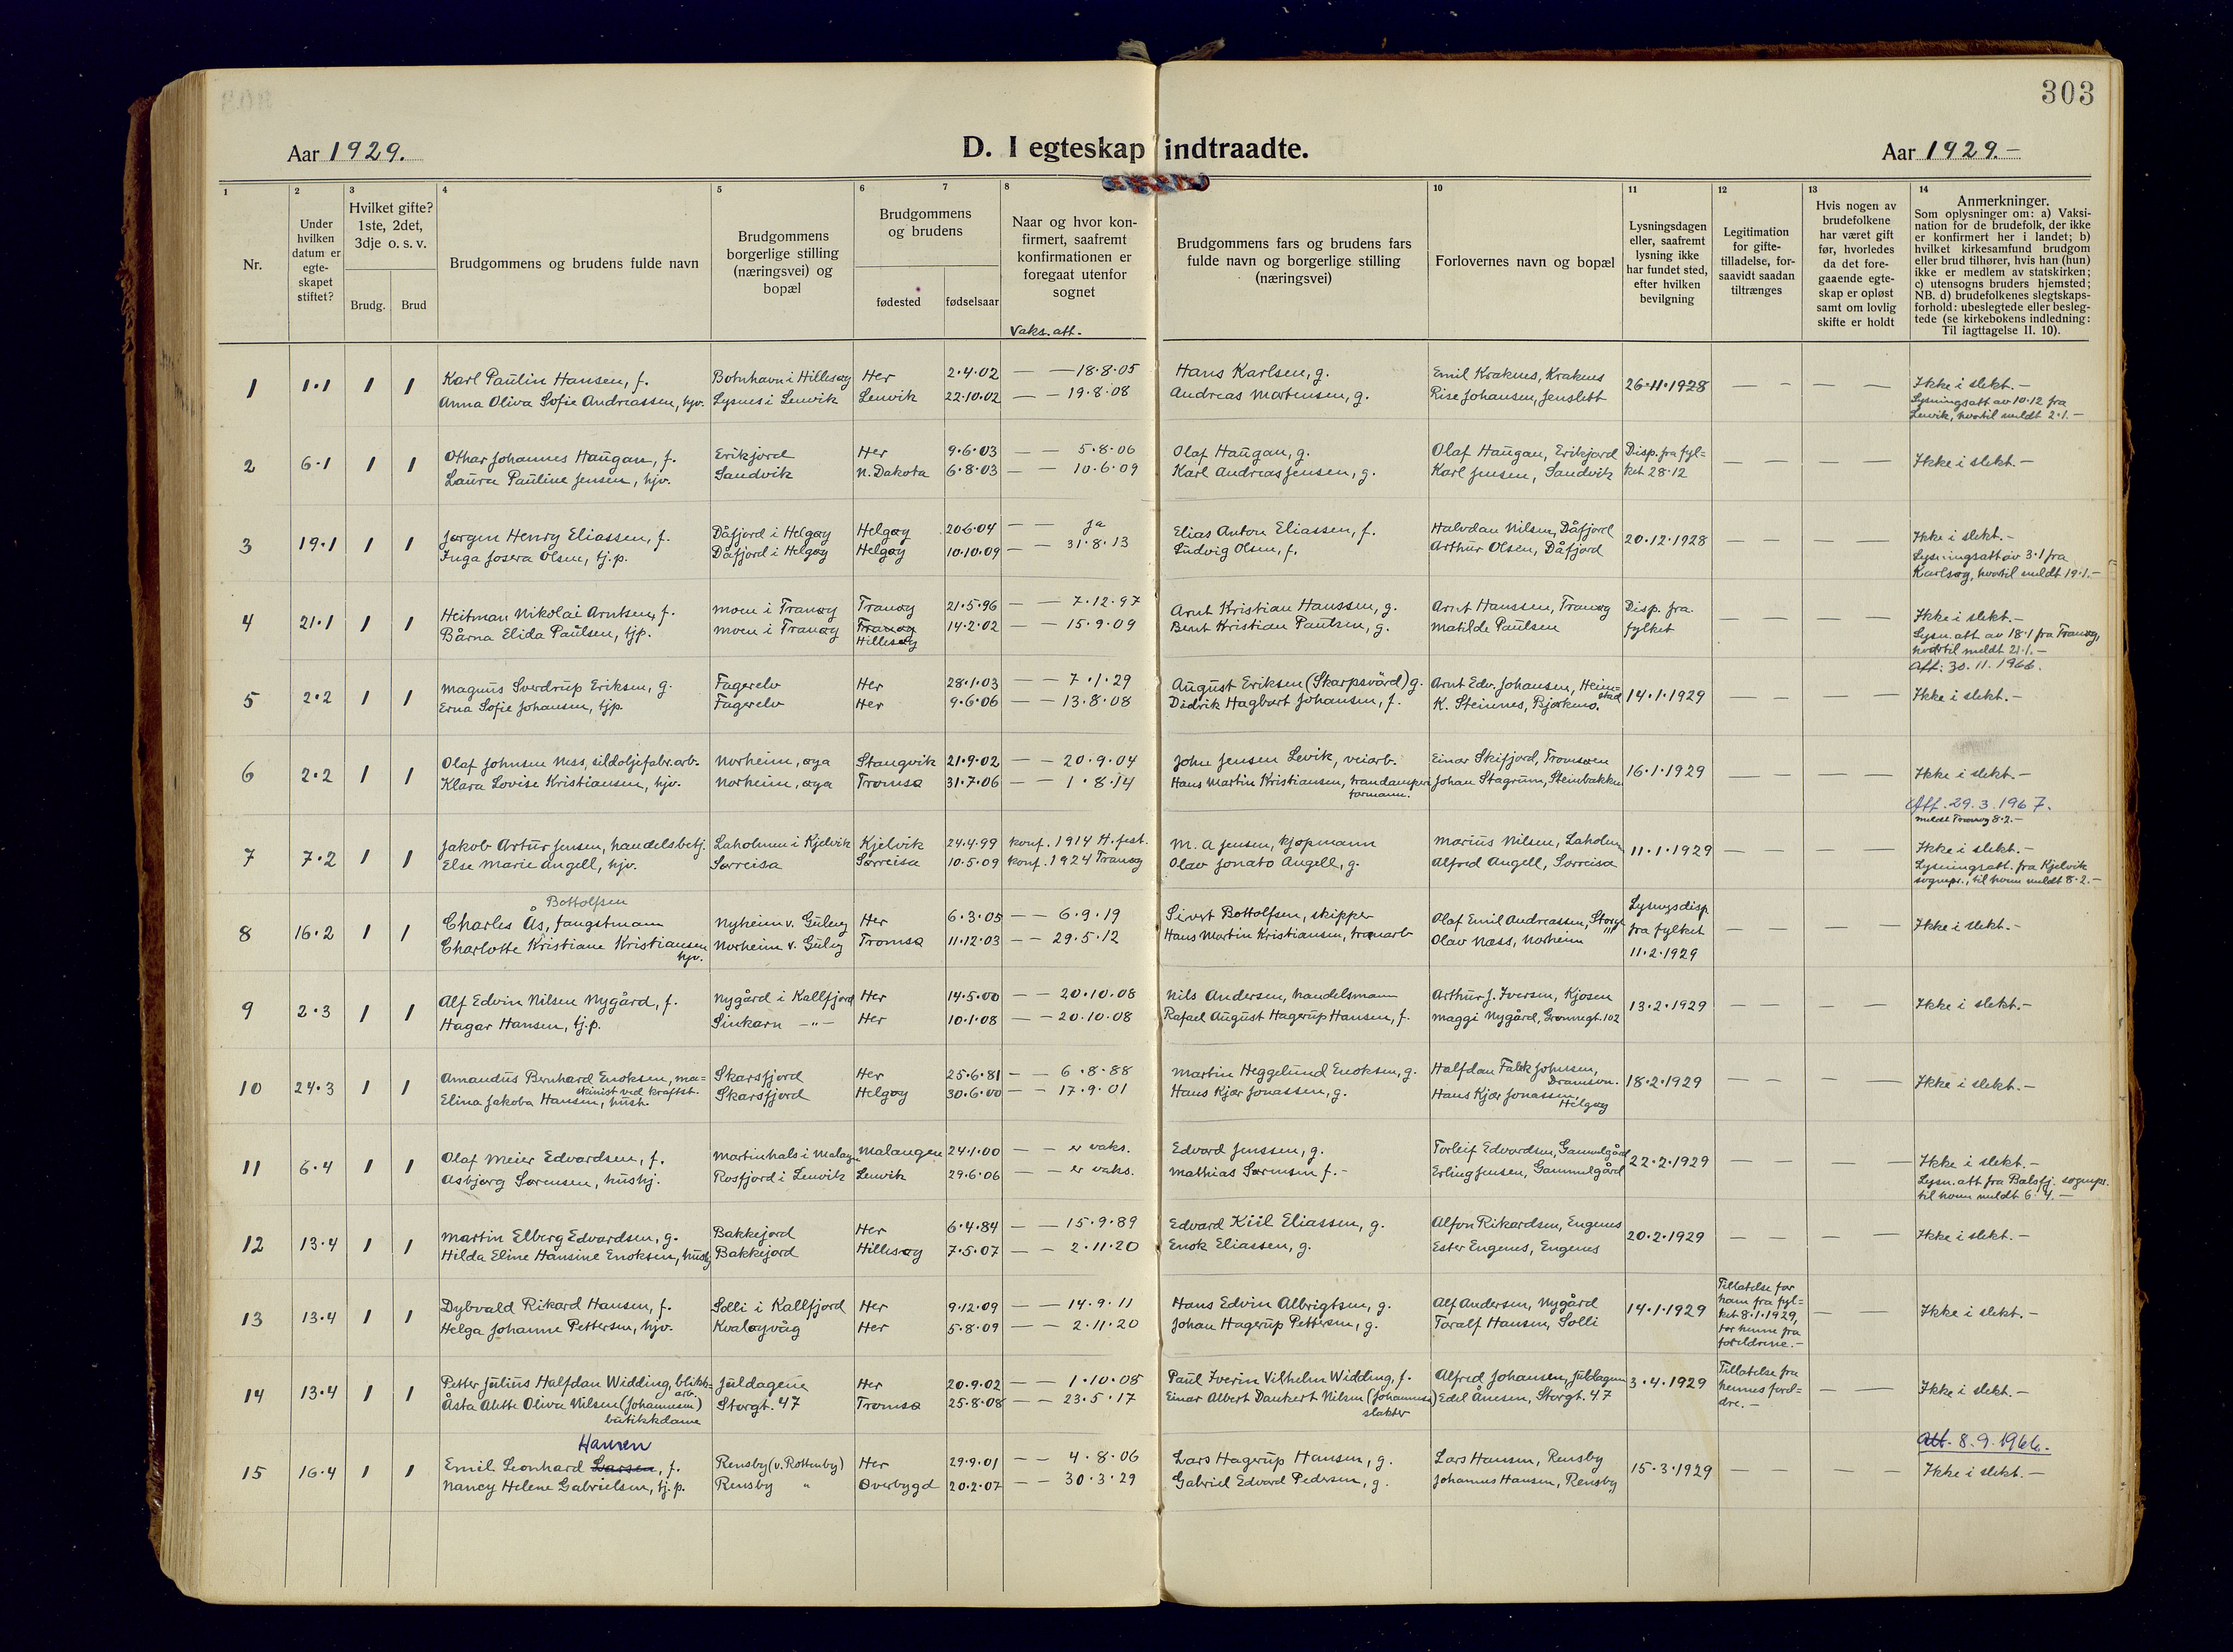 303
Aar 1929.
D. I egteskap indtraadte.
Aar 1929.-
1 2 3 4 5 6 7 8 10 11 12 13 14
Nr.
Under hvilken datum er egte-skapet stiftet?
Hvilket gifte? 1ste, 2det, 3dje o. s. v.
Brudg. Brud
Brudgommens og brudens fulde navn
Brudgommens borgerlige stilling (næringsvei) og bopæl
Brudgommens og brudens
fødested fødselsaar
Naar og hvor kon-firmert, saafremt konfirmationen er foregaat utenfor sognet
Vaks. att.
Brudgommens fars og brudens fars fulde navn og borgerlige stilling (næringsvei)
Forlovernes navn og bopæl
Lysningsdagen eller, saafremt lysning ikke har fundet sted, efter hvilken bevilgning
Legitimation for gifte-tilladelse, for-saavidt saadan tiltrænges
Hvis nogen av brudefolkene har været gift før, hvorledes da det fore-gaaende egte-skap er opløst samt om lovlig skifte er holdt
Anmerkninger.
Som oplysninger om: a) Vaksi-nation for de brudefolk, der ikke er konfirmert her i landet; b) hvilket kirkesamfund brudgom eller brud tilhører, hvis han (hun) ikke er medlem av statskirken; c) utensogns bruders hjemsted; NB. d) brudefolkenes slegtskaps-forhold: ubeslegtede eller besleg-tede (se kirkebokens indledning: Til iagttagelse II. 10).
1 1.1 1 1 Karl Paulin Hansen, f. Botnhavn i Hillesøy Her 2.4.02 — — 18.8.05 Hans Karlsen, g. Emil Kraknes, Kraknes 26.11.1928 — - — — Ikke i slekt.-
Anna Oliva Sofie Andreassen, hjv. Lysnes i Lenvik Lenvik 22.10.02 — — 19.8.08 Andreas Mortensen, g. Rise Johansen, Jenslett
Lysningsatt av 10.12 fra
Lenvik, hvortil meldt 2.1.-
2 6.1 1 1 Othar Johannes Haugan, f. Erikjord Her 9.6.03 — — 5.8.06 Olaf Haugan, g. Olaf Haugan, Erikjord Disp. fra fyl= — — — — Ikke i slekt.-
Laura Pauline Jensen, hjv. Sandvik N. Dakota 6.8.03 — — 10.6.09 Karl Andreas Jensen, g. Karl Jensen, Sandvik ket 28.12
3 19.1 1 1 Jørgen Henry Eliassen, f. Dåfjord i Helgøy Helgøy 20.6.04 — — ja Elias Anton Eliassen, f. Halvdan Nilsen, Dåfjord 20.12.1928 — — — — Ikke i slekt.-
Inga Josera Olsen, tj.p. Dåfjord i Helgøy Helgøy 10.10.09 — — 31.8.13 Ludvig Olsen, f. Arthur Olsen, Dåfjord
Lysningsatt av 3.1 fra
Karlsøy, hvortil meldt 19.1.-
4 21.1 1 1 Heitman Nikolai Arntsen, f. Moen i Tranøy Tranøy 21.5.96 — — 7.12.97 Arnt Kristian Hanssen, g. Arnt Hanssen, Tranøy Disp. fra — — — — Ikke i slekt.-
Bårna Elida Paulsen, tjp. Moen i Tranøy Tranøy 14.2.02 — — 15.9.09 Bernt Kristian Paulsen, g. Matilde Paulsen fylket
Hillesøy
Lysn. att av 18.1 fra Tranøy,
hvortil meldt 21.1.-
Att. 30.11.1966.
5 2.2 1 1 Magnus Sverdrup Eriksen, g. Fagerelv Her 28.1.03 — — 7.1.29 August Eriksen (Skarpsvärd) g. Arnt Edv. Johansen, Heim=stad 14.1.1929 — — — — Ikke i slekt.-
Erna Sofie Johansen, tjp. Fagerelv Her 9.6.06 — — 13.8.08 Didrik Hagbart Johansen, f. K. Steinnes, Bjørkmo.
6 2.2 1 1 Olaf Johnsen Ness, sildoljefabr.arb. Norheim, øya Stangvik 21.9.02 — — 20.9.04 John Jensen Levik, veiarb. Einar Skifjord, Tromsøen 16.1.1929 — — — — Ikke i slekt.-
Klara Lovise Kristiansen, hjv. Norheim, øya Tromsø 31.7.06 — — 1.8.14 Hans Martin Kristiansen, trandamperi formann. Johan Stagrum, Steinbakken
Att. 29.3.1967.
meldt Tranøy 8.2.-
7 7.2 1 1 Jakob Artur Jensen, handelsbetj. Laholmen i Kjelvik Kjelvik 24.4.99 konf. 1914 H.fest. M. A Jensen, kjøpmann Marius Nilsen, Laholmen 11.1.1929 — — — — Ikke i slekt.-
Else Marie Angell, hjv. Sørreisa Sørreisa 10.5.09 konf. 1924 Tranøy Olav Jonato Angell, g. Alfred Angell, Sørreisa
Lysningsatt. fra Kjelvik
sognepr., til hvem meldt 8.2.-
Bottolfsen
8 16.2 1 1 Charles Ås, fangstmann Nyheim v. Guleng Her 6.3.05 — — 6.9.19 Sivert Bottolfsen, skipper Olaf Emil Andreassen, Storgt. 111 Lysningsdisp fra fylket 11.2.1929 — — — — Ikke i slekt.-
Charlotte Kristiane Kristiansen hjv. Norheim v. Guleng Tromsø 11.12.03 — — 29.5.12 Hans Martin Kristiansen, tranarb Olav Næss, Norheim
9 2.3 1 1 Alf Edvin Nilsen Nygård, f. Nygård i Kallfjord Her 14.5.00 — — 20.10.08 Nils Andersen, handelsmann Arthur J. Iversen, Kjosen 13.2.1929 — — — — Ikke i slekt.-
Hagar Hansen, tj.p. Sinkarn -"- Her 10.1.08 — — 20.10.08 Rafael August Hagerup Hansen, f. Maggi Nygård, Grønnegt. 102
10 24.3 1 1 Amandus Bernhard Enoksen, ma=skinist ved kraftst. Skarsfjord Her 25.6.81 — — 6.8.88 Martin Heggelund Enoksen, g. Halfdan Falck Johnsen, Dramsvn. 18.2.1929 — - — — Ikke i slekt.-
Elina Jakoba Hansen, hush. Skarsfjord Helgøy 30.6.00 — — 17.9.01 Hans Kjær Jonassen, g. Hans Kjær Jonassen, Helgøy
11 6.4 1 1 Olaf Meier Edvardsen, f. Martinhals i Malagn. Malangen 24.1.00 — — er vaks. Edvard Jenssen, g. Torleif Edvardsen, Gammelgård 22.2.1929 — — — — Ikke i slekt.-
Asbjørg Sørensen, hushj. Rosfjord i Lenvik Lenvik 29.6.06 — — er vaks. Mathias Sørensen f.- Erling Jensen, Gammelgård
Lysn. att fra Balsfj. sognepr.
til hvem meldt 6.4.—
12 13.4 1 1 Martin Elberg Edvardsen, g. Bakkejord Her 6.4.84 — — 15.9.89 Edvard Kiil Eliassen, g. Alfon Rikardsen, Engenes 20.2.1929 — — — — Ikke i slekt.-
Hilda Eline Hansine Enoksen, hushj Bakkejord Hillesøy 7.5.07 — — 2.11.20 Enok Eliassen, g. Ester Engenes, Engenes
13 13.4 1 1 Dybvald Rikard Hansen, f. Solli i Kallfjord Her 9.12.09 — — 14.9.11 Hans Edvin Albrigtsen, g. Alf Andersen, Nygård 14.1.1929 Tillatelse for ham fra fyl=ket 8.1.1929, for henne fra foreldrene.- — — Ikke i slekt.-
Helga Johanne Pettersen, hjv. Kvaløyvåg Her 5.8.09 — — 2.11.20 Johan Hagerup Pettersen, g. Toralf Hansen, Solli
14 13.4 1 1 Petter Julius Halfdan Widding, blikk=arb. Juldagene Her 20.9.02 — — 1.10.08 Paul Iverin Vilhelm Widding, f. Alfred Johansen, Juldagene 3.4.1929 Tillatelse fra hennes foreld=dre.- — — Ikke i slekt.-
Åsta Alette Oliva Nilsen (Johannesen) butikkdame Storgt. 47 Tromsø 25.8.08 — — 23.5.17 Einar Albert Dankert Nilsen (Johannesen) slakter Edel Ånesen, Storgt. 47
Hansen
Att. 8.9.1966.
15 16.4 1 1 Emil Leonhard Larsen, f. Rensby (v. Rottenby) Her 29.9.01 — — 4.8.06 Lars Hagerup Hansen, g. Lars Hansen, Rensby 15.3.1929 — — — Ikke i slekt.-
Nancy Helene Gabrielsen, tj.p. Rensby " Øverbygd 20.2.07 — — 30.3.29 Gabriel Edvard Pedersen, g. Johannes Hansen, Rensby